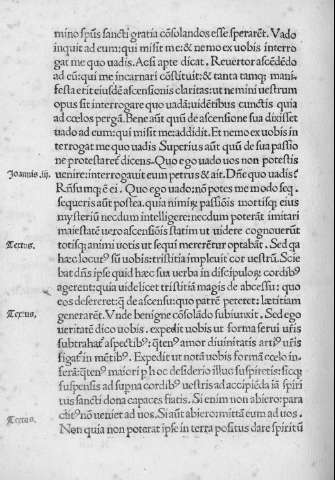 mino spūs sancti gratia cōsolandos esse sperarēt. Vado
inquit ad eum: qui misit me: & nemo ex uobis interro
gat me quo uadis. Acsi apte dicat. Reuertor ascēdēdo
ad eū: qui me incarnari cōstituit: & tanta tamqꝫ mani,
festa erit eiusdē ascensionis claritas: ut nemini uestrum
opus sit interrogare quo uadā: uidētibus cunctis quia
ad cœlos pergā. Bene aūt quū de ascensione sua dixisset
uado ad eum: qui misit me: addidit. Et nemo ex uobis in
terrogat me quo uadis Superius aūt quū de sua passio
ne protestaret̄ dicens. Quo ego uado uos non potestis
Joannis .iij. uenire: interrogauit eum petrus & ait. Dn̄e quo uadis?
Rn̄sumqꝫ ē ei. Quo ego uado: nō potes me modo seq.
sequeris aūt postea. quia nimiꝝ passiōis mortisqꝫ eius
mysteriū necdum intelligere: necdum poterāt imitari
maiestatē uero ascensiōis statim ut uidere cognouerūt
Textus. totisqꝫ animi uotis ut sequi mererētur optabāt. Sed qa
hæc locut⁹ sū uobis: tristitia impleuit cor uestrū. Scie
bat dn̄s ipse quid hæc sua uerba in discipuloꝝ cordib⁹
agerent: quia uidelicet tristitia magis de abcessu: quo
eos desereret: q̄ de ascensu: quo patrē peteret: lætitiam
Textus. generarēt. Vnde benigne cōsolādo subiunxit. Sed ego
ueritatē dico uobis. expedit uobis ut forma serui uīs
subtrahat̄ aspectib⁹: q̄ten⁹ amor diuinitatis arti⁹ uīs
figat̄ in mētib⁹. Expedit ut notā uobis formā cœlo in
ferā: q̄ten⁹ maiori p hoc desiderio illuc suspiretis: sicqꝫ
suspensis ad supna cordib⁹ uestris ad accipiēda iā spiri
tus sancti dona capaces fiatis. Si enim non abiero: para
Textus. clit⁹ nō ueniet ad uos. Si aūt abiero: mittā eum ad uos.
Non quia non poterat ipse in terra positus dare spiritū